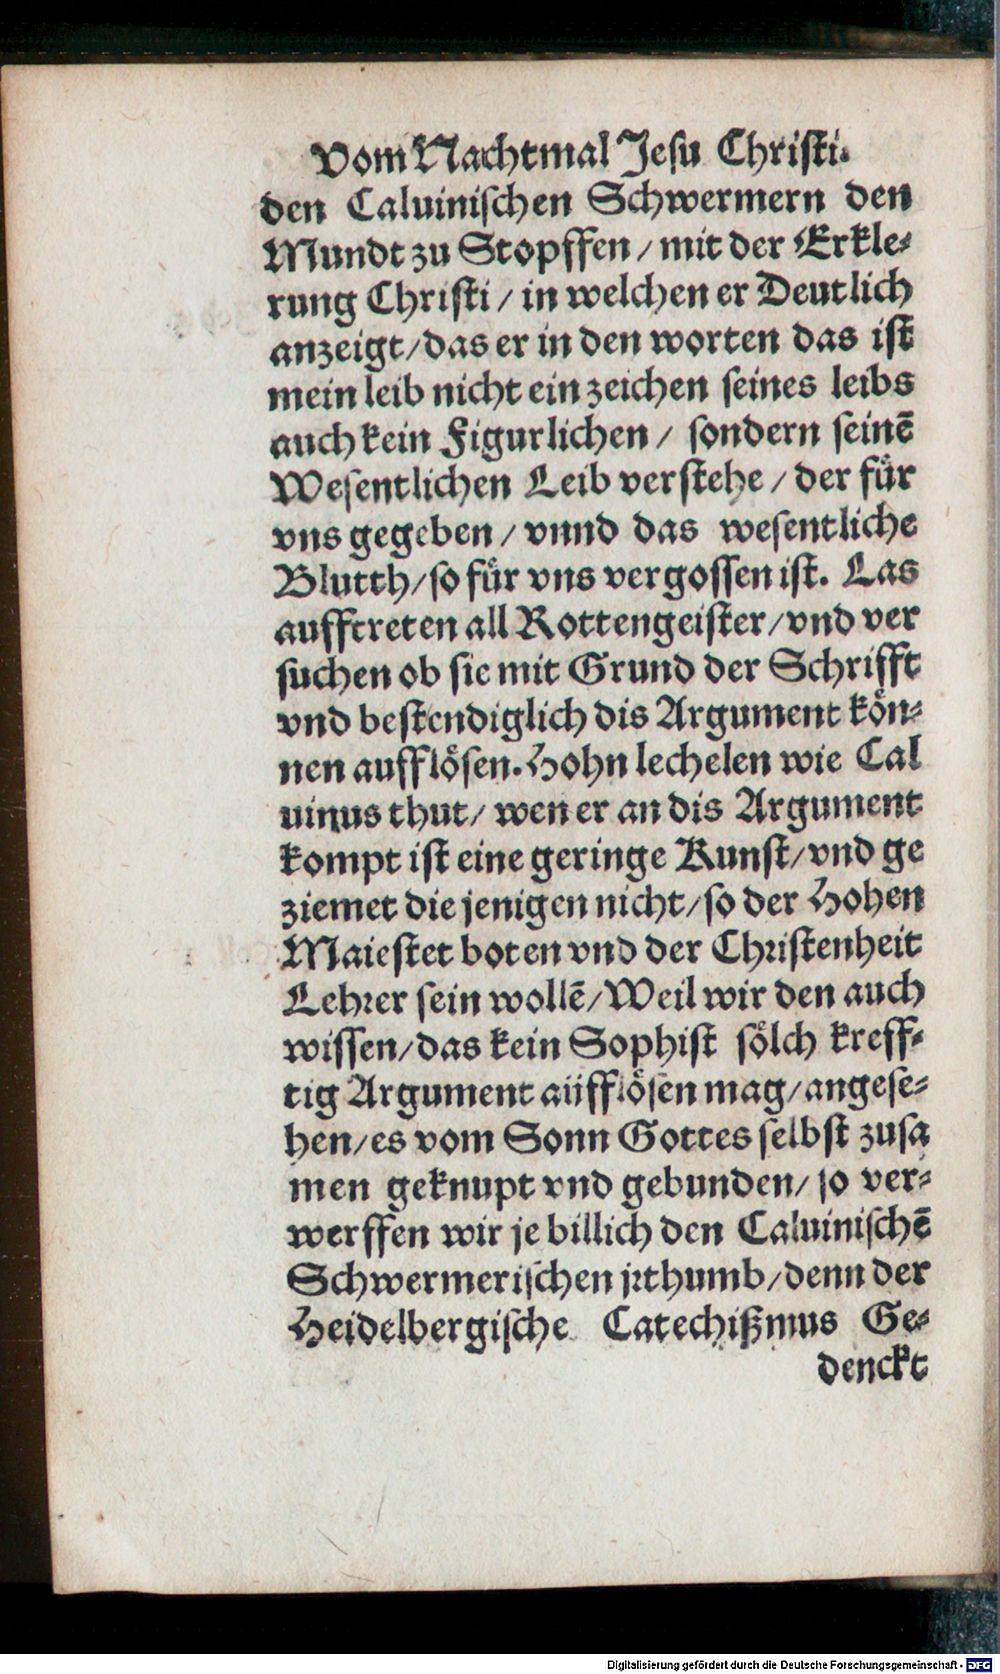 Vom Nachtmal Jesu Christi.
den Caluinischen Schwermern den
Mundt zu Stopffen / mit der Erkle⸗
rung Christi / in welchen er Deutlich
anzeigt / das er in den worten das ist
mein leib nicht ein zeichen seines leibs
auch kein Figurlichen / sondern seinē
Wesentlichen Leib verstehe / der für
vns gegeben / vnnd das wesentliche
Blutth / so für vns vergossen ist. Las
aufftreten all Rottengeister / vnd ver
suchen ob sie mit Grund der Schrifft
vnd bestendiglich dis Argument kön⸗
nen aufflösen. Hohn lechelen wie Cal
uinus thut / wen er an dis Argument
kompt ist eine geringe Kunst / vnd ge
ziemet die jenigen nicht / so der Hohen
Maiestet boten vnd der Christenheit
Lehrer sein wollē / Weil wir den auch
wissen / das kein Sophist sölch kreff⸗
tig Argument aüfflösen mag / angese⸗
hen / es vom Sonn Gottes selbst zusa
men geknupt vnd gebunden / so ver⸗
werffen wir je billich den Caluinischē
Schwermerischen jrthumb / denn der
Heidelbergische Catechißmus Ge⸗
denckt
Digitalisierung gefördert durch die Deutsche Forschungsgemeinschaft - DFG